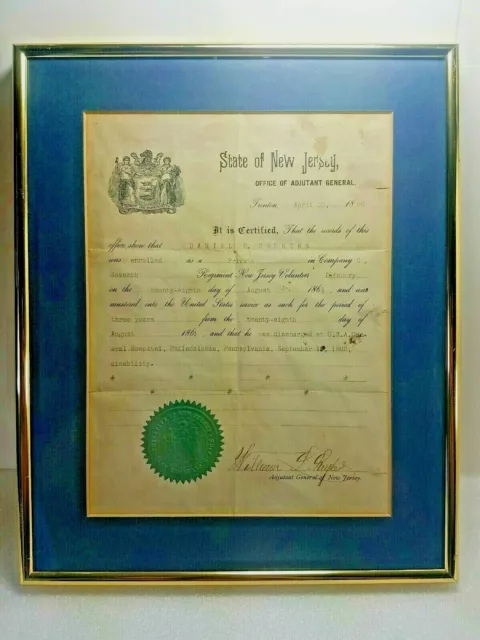 State of New Jersey,
OFFICE OF ADJUTANT GENERAL.
Trenton, April 18
It is Certified, That the records of this
office show that DANIEL
was enrolled as a Private in Company
Seventh Regiment New Jersey Volunteer Infantry
on the twenty-eighth day of August 186 and was
mustered into the United States service as such for the period of
three years from the twenty-eighth day of
August 186 and that he was discharged at U.S.A. Gen-
eral Hospital, Philadelphia, Pennsylvania, September
disability.
William
Adjutant General of New Jersey.